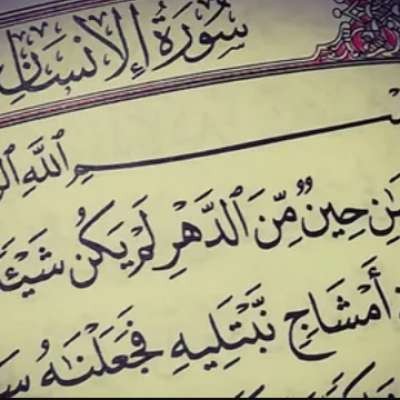 سُورَةُ الْإِنسَانِ
بِسْمِ اللَّهِ
حِينٌ مِّنَ الدَّهْرِ لَمْ يَكُن شَيْـًٔا
أَمْشَاجٍ نَّبْتَلِيهِ فَجَعَلْنَاهُ